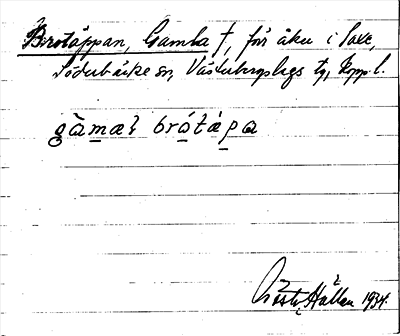 Brotäppan, Gamla †, för åker i Saxe,
Söderbärke sn, Västerbergslags tg, Kopp. l.
gàmaɫ brótàpa
Gösta Hallen 1934.